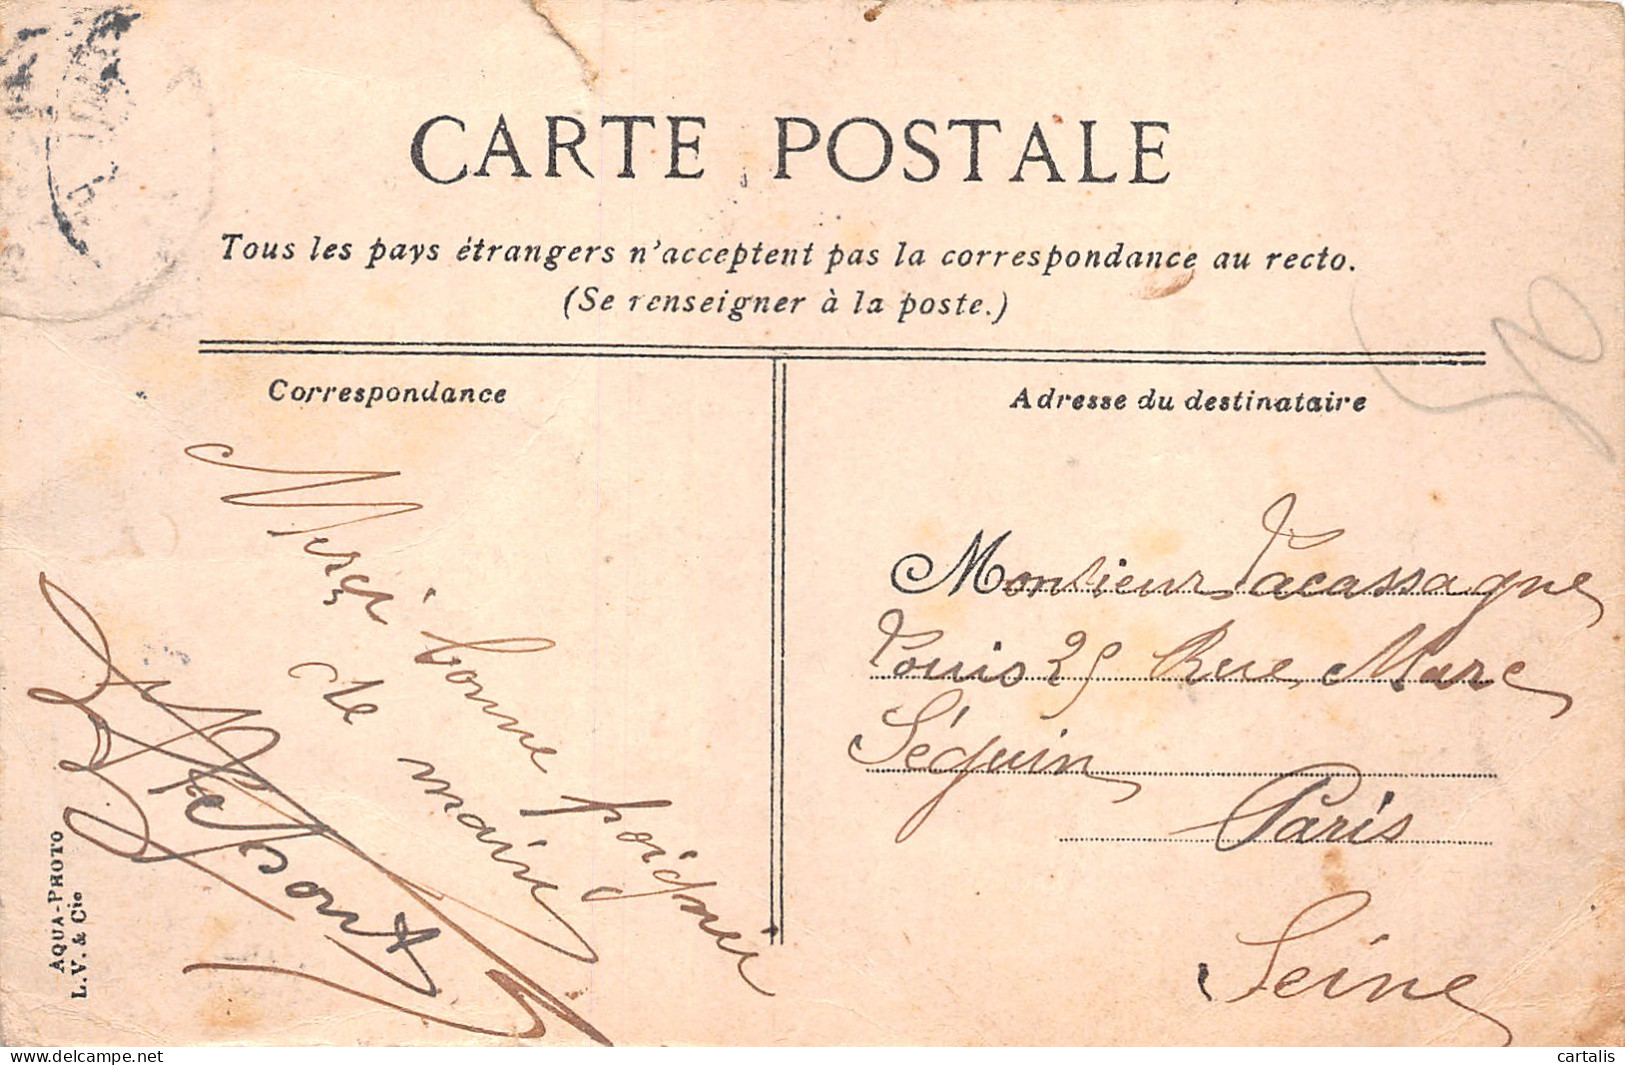 CARTE POSTALE
Tous les pays étrangers n'acceptent pas la correspondance au recto.
(Se renseigner à la poste.)
Correspondance
Adresse du destinataire
Merci bonne poignée
de main
Monsieur Lacassagne
Louis 25 Rue Marc
Séguin
Paris
Seine
50
AQUA-PHOTO
L. V. & Cie
cartalis